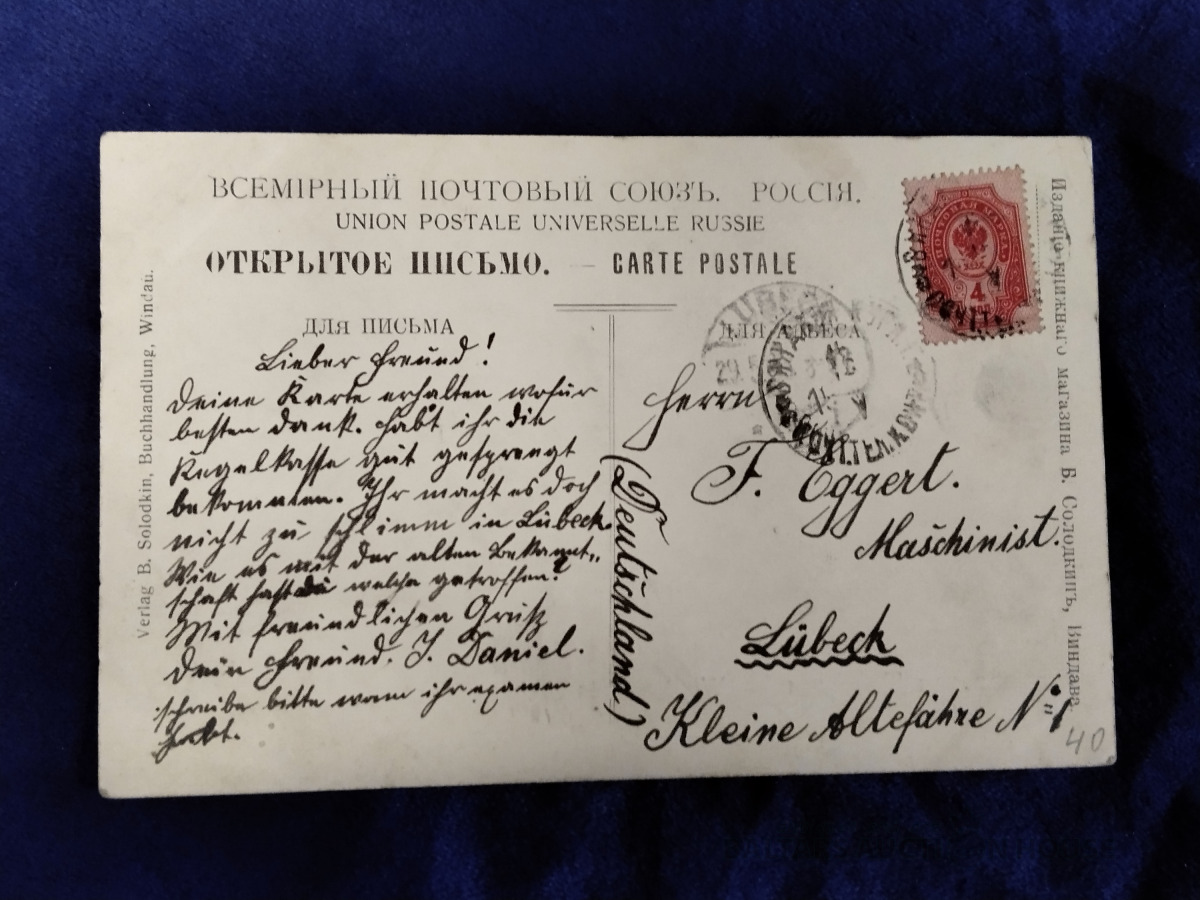 ВСЕМІРНЫЙ ПОЧТОВЫЙ СОЮЗЪ. РОССІЯ.
UNION POSTALE UNIVERSELLE RUSSIE
ОТКРЫТОЕ ПИСЬМО. — CARTE POSTALE
ДЛЯ ПИСЬМА
Lieber Freund!
Deine Karte erhalten wofür
besten Dank. habt ihr die
Kegelkasse gut gesprengt
bekommen. Ihr macht es doch
nicht zu schlimm in Lübeck.
Wie es mit der alten Bekannt„
schaft hast du welche getroffen?
Mit freundlichen Gruß
dein Freund. J. Daniel.
schreibe bitte wann ihr examen
habt.
Verlag B. Solodkin, Buchhandlung, Windau.
ДЛЯ АДРЕСА
Herrn
F. Eggert.
Maschinist.
Lübeck
Kleine Altefähre No 1
(Deutschland)
40
Изданіе книжнаго магазина Б. Солодкинъ, Виндава.
ПОЧТОВАЯ МАРКА
4
LÜBECK
29.5